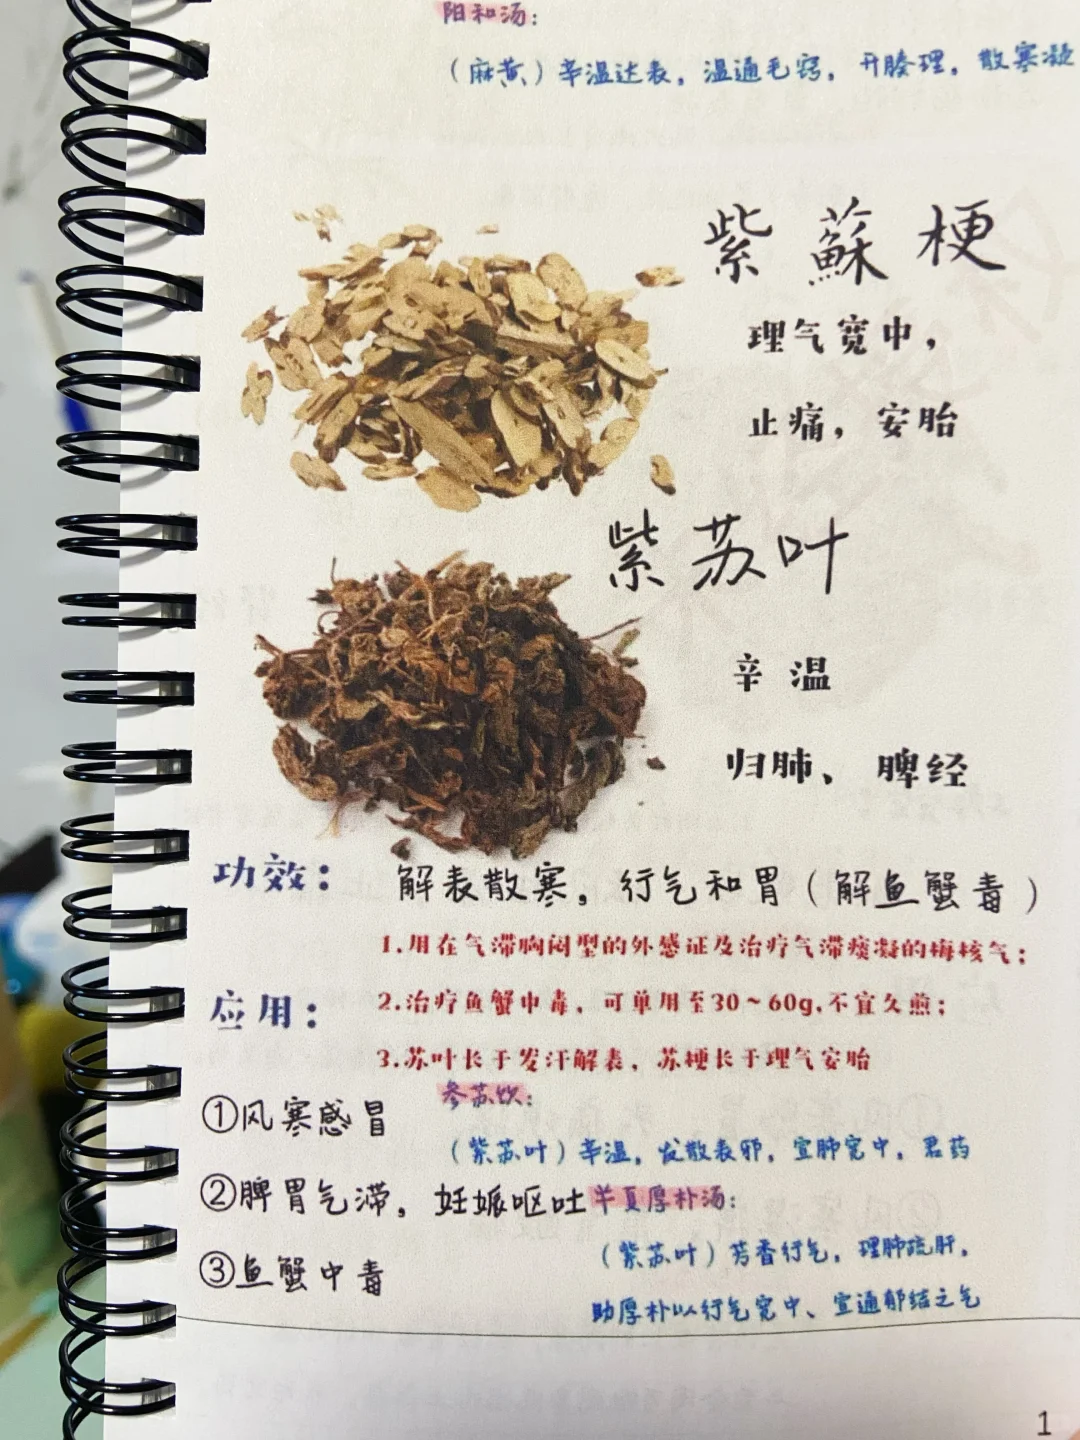 阳和汤：
（麻黄）辛温达表，温通毛窍，开腠理，散寒凝
紫蘇梗
理气宽中，
止痛，安胎
紫苏叶
辛温
归肺、脾经
功效：解表散寒，行气和胃（解鱼蟹毒）
1.用在气滞胸闷型的外感证及治疗气滞痰凝的梅核气；
应用：2.治疗鱼蟹中毒，可单用至30~60g,不宜久煎；
3.苏叶长于发汗解表，苏梗长于理气安胎
参苏饮：
①风寒感冒
（紫苏叶）辛温，发散表邪，宣肺宽中，君药
②脾胃气滞，妊娠呕吐 半夏厚朴汤：
（紫苏叶）芳香行气，理肺疏肝，
③鱼蟹中毒
助厚朴以行气宽中、宣通郁结之气
1